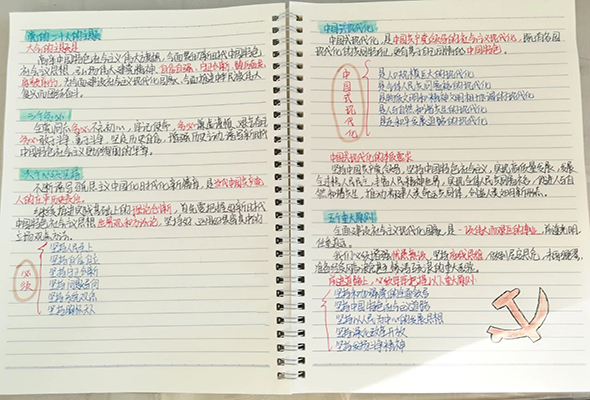 党的二十大的主题
大会的主题是
高举中国特色社会主义伟大旗帜，全面贯彻新时代中国特色
社会主义思想，弘扬伟大建党精神，自信自强、守正创新，踔厉奋发、
勇毅前行，为全面建设社会主义现代化国家、全面推进中华民族伟大
复兴而团结奋斗。
三个务必
全党同志务必不忘初心、牢记使命，务必谦虚谨慎、艰苦奋斗，
务必敢于斗争、善于斗争，坚定历史自信，增强历史主动，谱写新时代
中国特色社会主义更加绚丽的华章。
六个必须坚持
不断谱写马克思主义中国化时代化新篇章，是当代中国共产党
人的庄严历史责任。
继续推进实践基础上的理论创新，首先要把握好新时代
中国特色社会主义思想的世界观和方法论，坚持好、运用好贯穿其中的
立场观点方法。
必须
坚持人民至上
坚持自信自立
坚持守正创新
坚持问题导向
坚持系统观念
坚持胸怀天下
中国式现代化
中国式现代化，是中国共产党领导的社会主义现代化，既有各国
现代化的共同特征，更有基于自己国情的中国特色。
中国式现代化
是人口规模巨大的现代化
是全体人民共同富裕的现代化
是物质文明和精神文明相协调的现代化
是人与自然和谐共生的现代化
是走和平发展道路的现代化
中国式现代化的本质要求
坚持中国共产党领导，坚持中国特色社会主义，实现高质量发展，发展
全过程人民民主，丰富人民精神世界，实现全体人民共同富裕，促进人与自
然和谐共生，推动构建人类命运共同体，创造人类文明新形态。
五个重大原则
全面建设社会主义现代化国家，是一项伟大而艰巨的事业，前途光明，
任重道远。
我们必须增强忧患意识，坚持底线思维，做到居安思危、未雨绸缪，
准备经受风高浪急甚至惊涛骇浪的重大考验。
前进道路上，必须牢牢把握以下重大原则
坚持和加强党的全面领导
坚持中国特色社会主义道路
坚持以人民为中心的发展思想
坚持深化改革开放
坚持发扬斗争精神